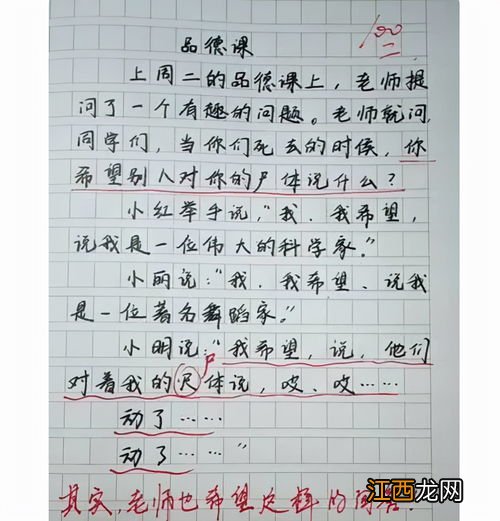 100
品德课
上周二的品德课上，老师提
问了一个有趣的问题。老师就问，
同学们，当你们死去的时候，你
希望别人对你的尸体说什么？
小红举手说，“我．我希望，
说我是一位伟大的科学家．”
小丽说：“我．我希望、说我
是一位著名舞蹈家．”
尸
小明说：“我希望，说，他们
对着我的尺体说，哎、哎……
动了……
动了……”
其实，老师也希望这样的回答．
江西龙网